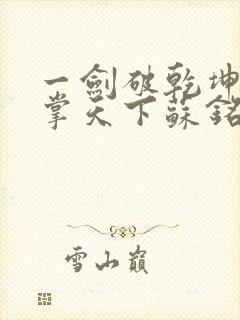 一劍破乾坤
掌天下蘇銘
雪山巔